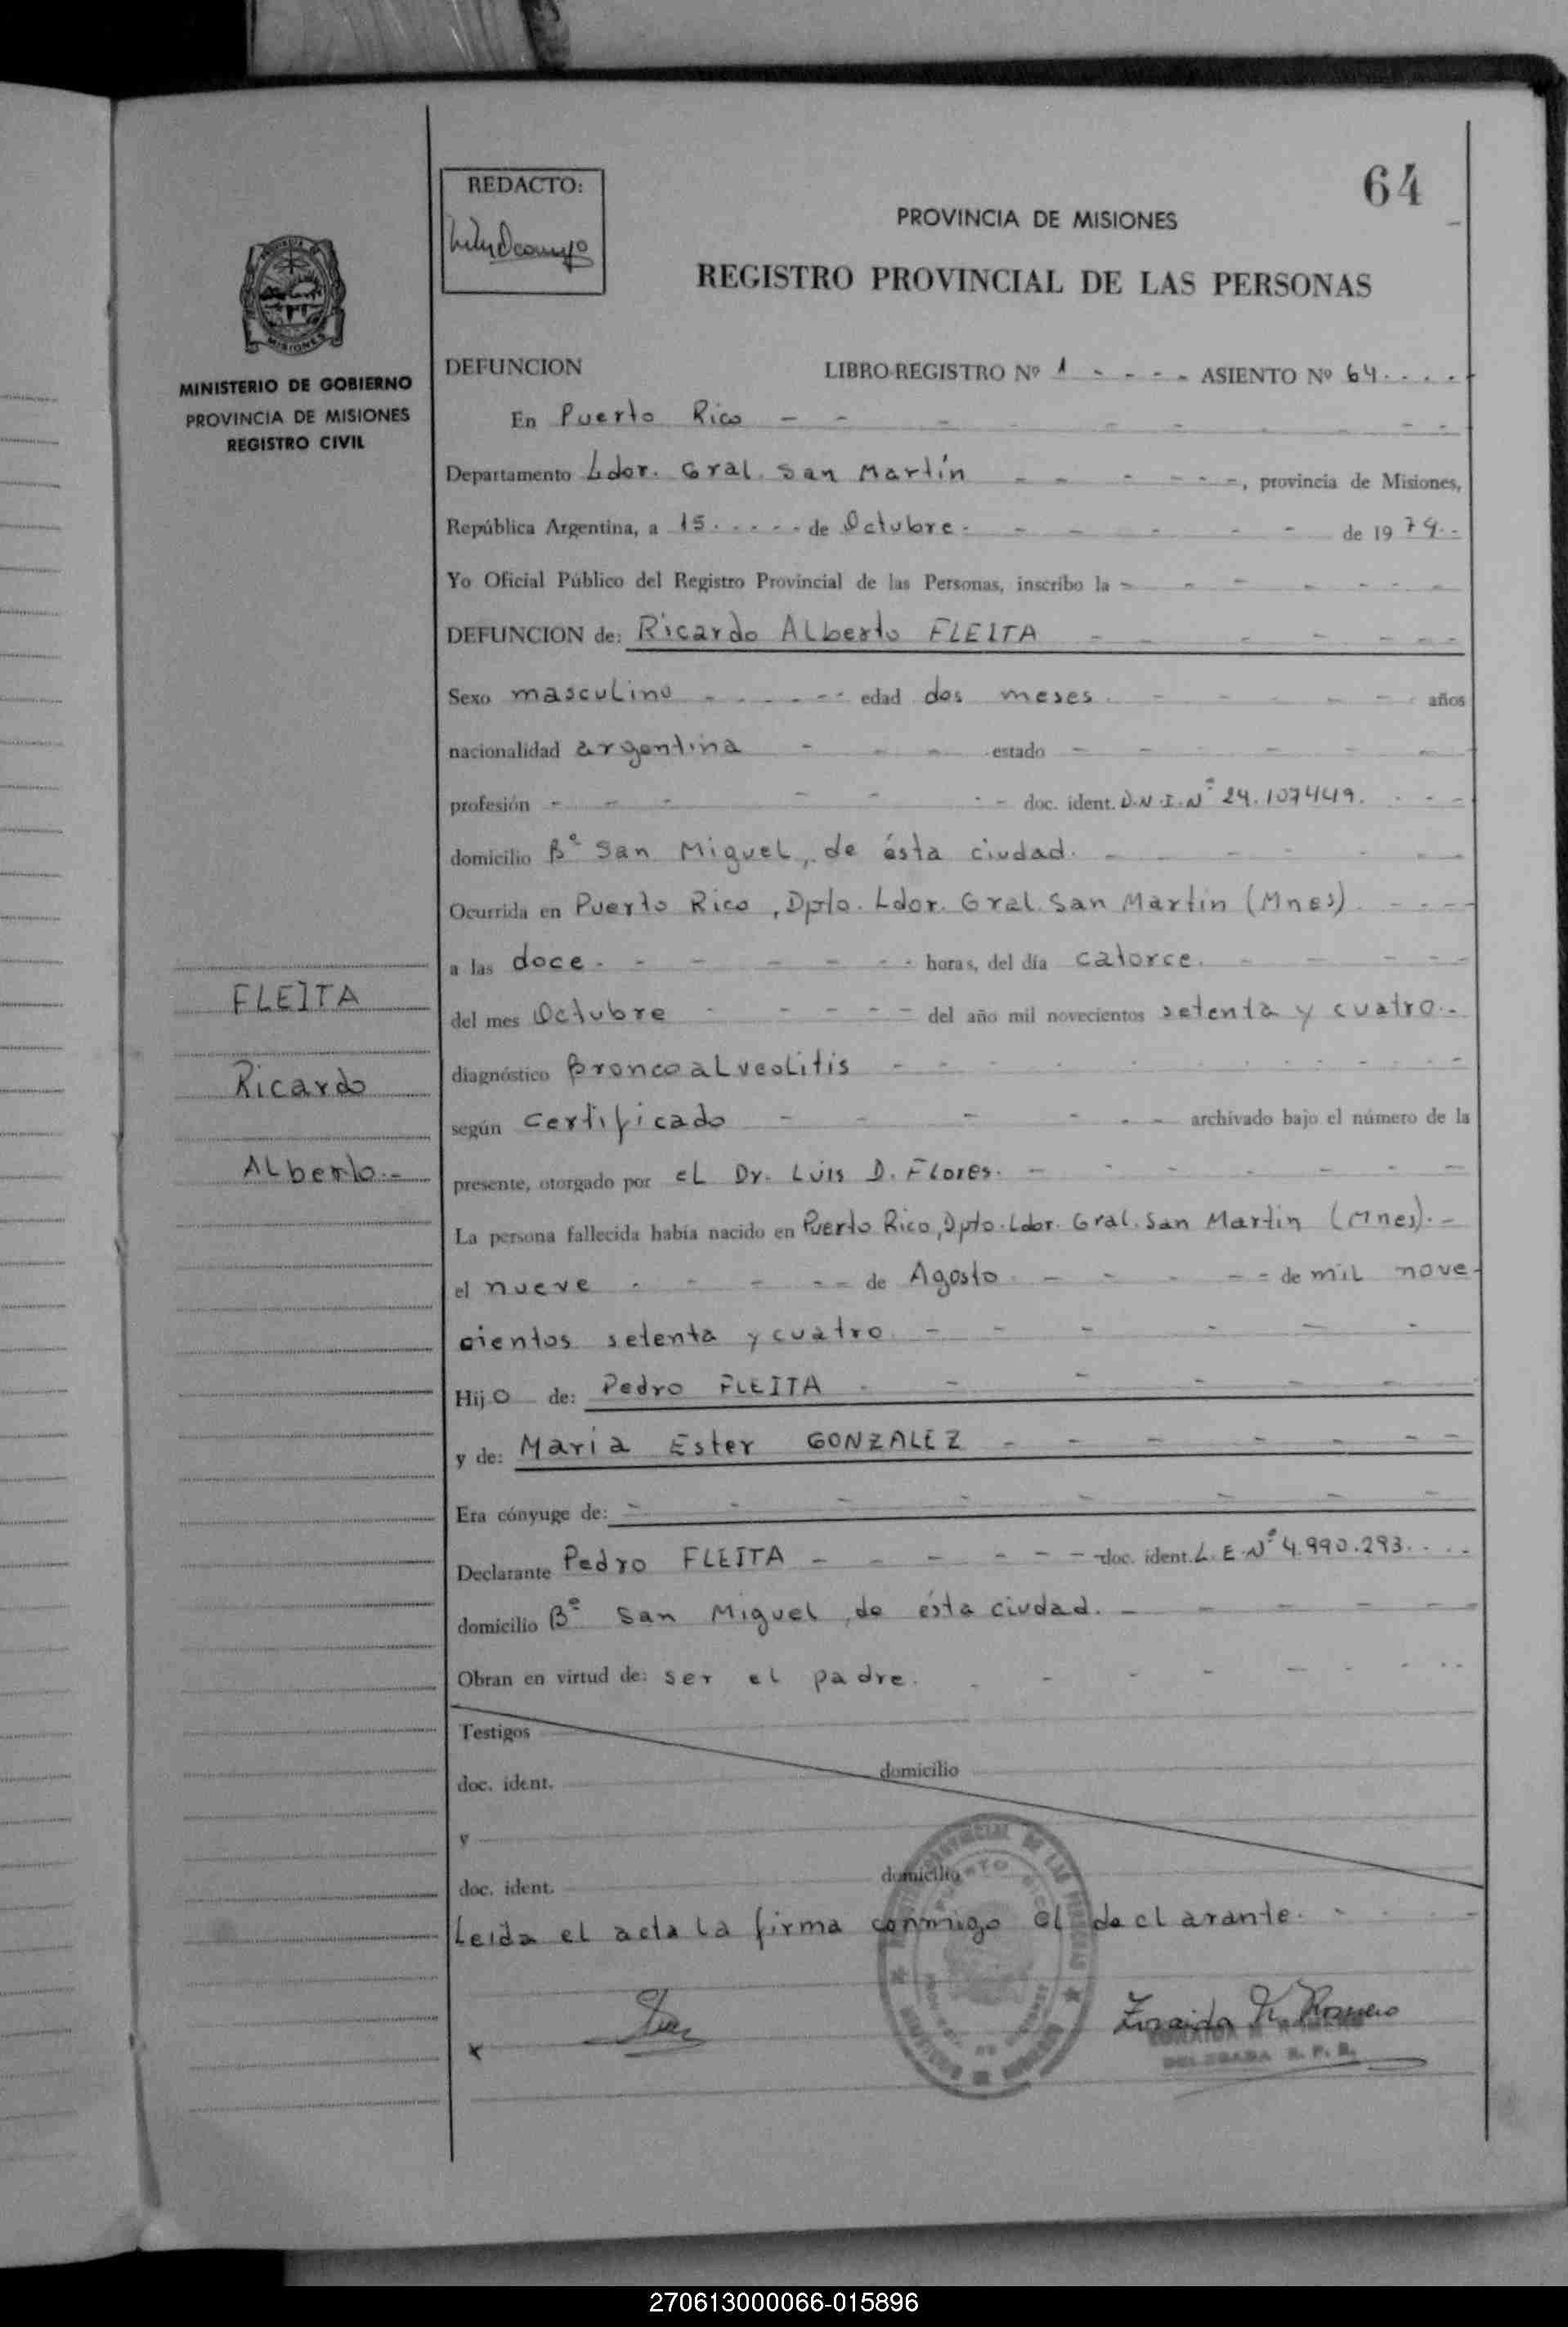 64
REDACTO:
PROVINCIA DE MISIONES
REGISTRO PROVINCIAL DE LAS PERSONAS
MISIONES
MINISTERIO DE GOBIERNO
PROVINCIA DE MISIONES
REGISTRO CIVIL
DEFUNCION LIBRO-REGISTRO Nº 1 - - - - ASIENTO Nº 64 - - - -
En Puerto Rico - - - - - - - - -
Departamento Ldor. Gral. San Martín - - - - - - -, provincia de Misiones,
República Argentina, a 15 - - - - - de Octubre - - - - - - - de 19 74 - -
Yo Oficial Público del Registro Provincial de las Personas, inscribo la - - - - - - -
DEFUNCION de: Ricardo ALberto FLEITA - - - - - - -
Sexo masculino - - - - - - edad dos meses - - - - - - años
nacionalidad argentina - - - - estado - - - - - - -
profesión - - - - - - - doc. ident. D.N.I.Nº 24.107449. - - -
domicilio Bº San Miguel, de ésta ciudad. - - - - - -
Ocurrida en Puerto Rico, Dpto. Ldor. Gral. San Martin (Mnes) - - - -
a las doce - - - - - - - horas, del día catorce. - - - - -
del mes Octubre - - - - - - del año mil novecientos setenta y cuatro.-
diagnóstico Broncoalveolitis - - - - - - - - - - -
según certificado - - - - - - archivado bajo el número de la
presente, otorgado por el Dr. Luis D. Flores. - - - - - - -
La persona fallecida había nacido en Puerto Rico, Dpto. Ldor. Gral. San Martin (Mnes). -
el nueve - - - - - - de Agosto - - - - - - de mil nove-
cientos setenta y cuatro - - - - - -
Hijo de: Pedro FLEITA - - - - - - -
y de: Maria Ester GONZALEZ - - - - - - -
Era cónyuge de: - - - - - - - -
Declarante Pedro FLEITA - - - - - - - doc. ident. L.E.Nº 4.990.293. - - -
domicilio Bº San Miguel, de ésta ciudad. - - - - -
Obran en virtud de: ser el padre. - - - - - - - -
Testigos
doc. ident. domicilio
y
doc. ident. domicilio
Leida el acta la firma conmigo el declarante. - - - -
x
Zoraida K. Romero
DELEGADA R. P. P.
FLEITA
Ricardo
ALberto.-
270613000066-015896